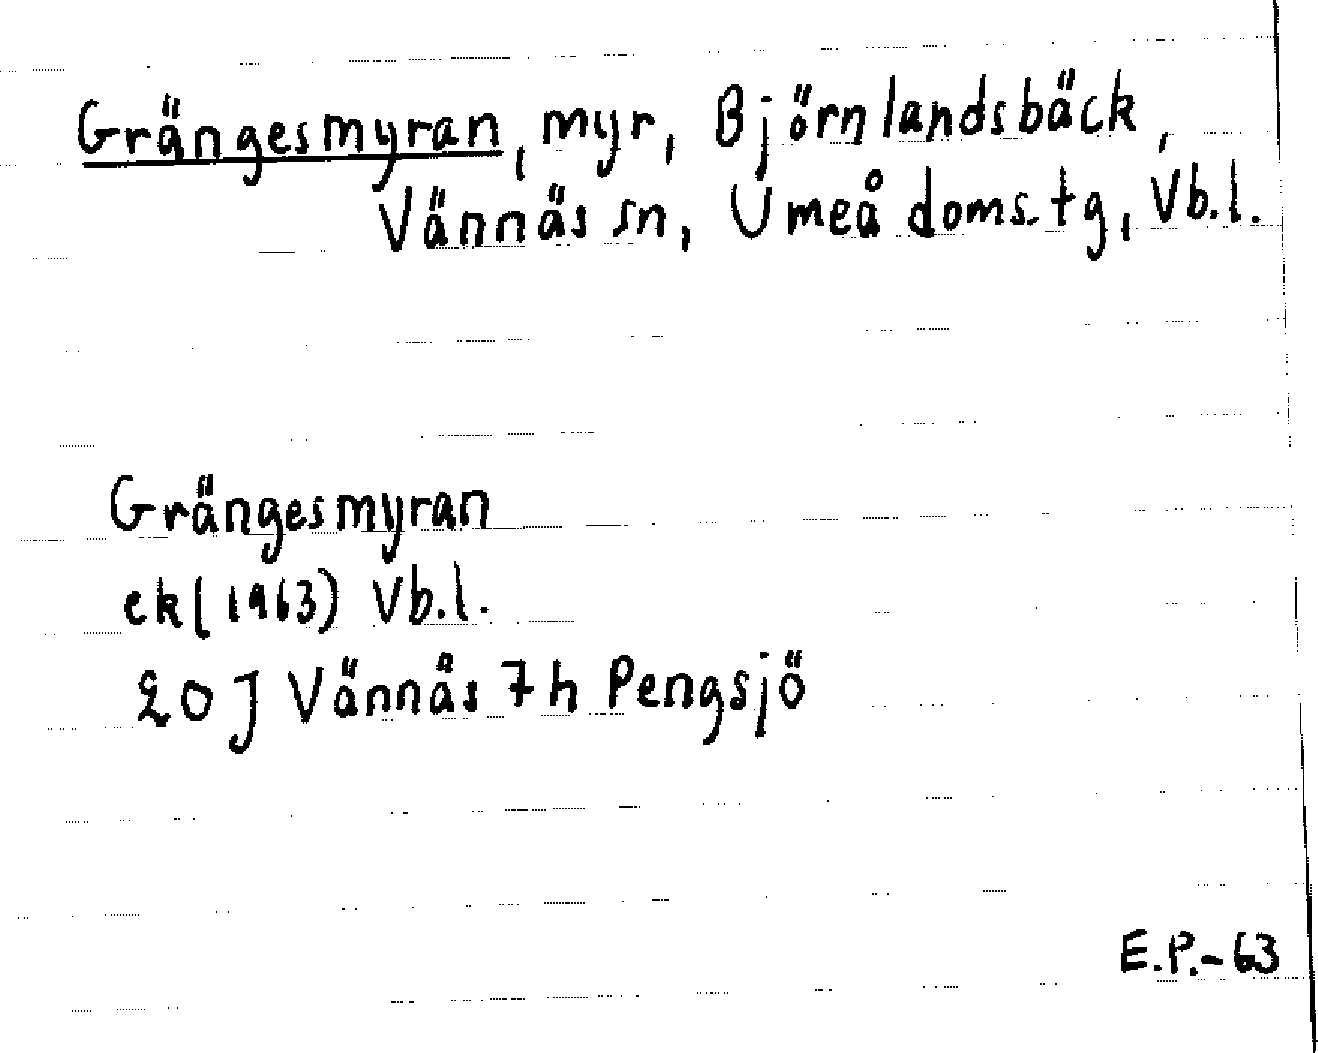 Grängesmyran, myr, Björnlandsbäck,
Vännäs sn, Umeå doms.tg, Vb.l.
Grängesmyran
ek (1963) Vb.l.
20 J Vännäs 7h Pengsjö
E.P.-63